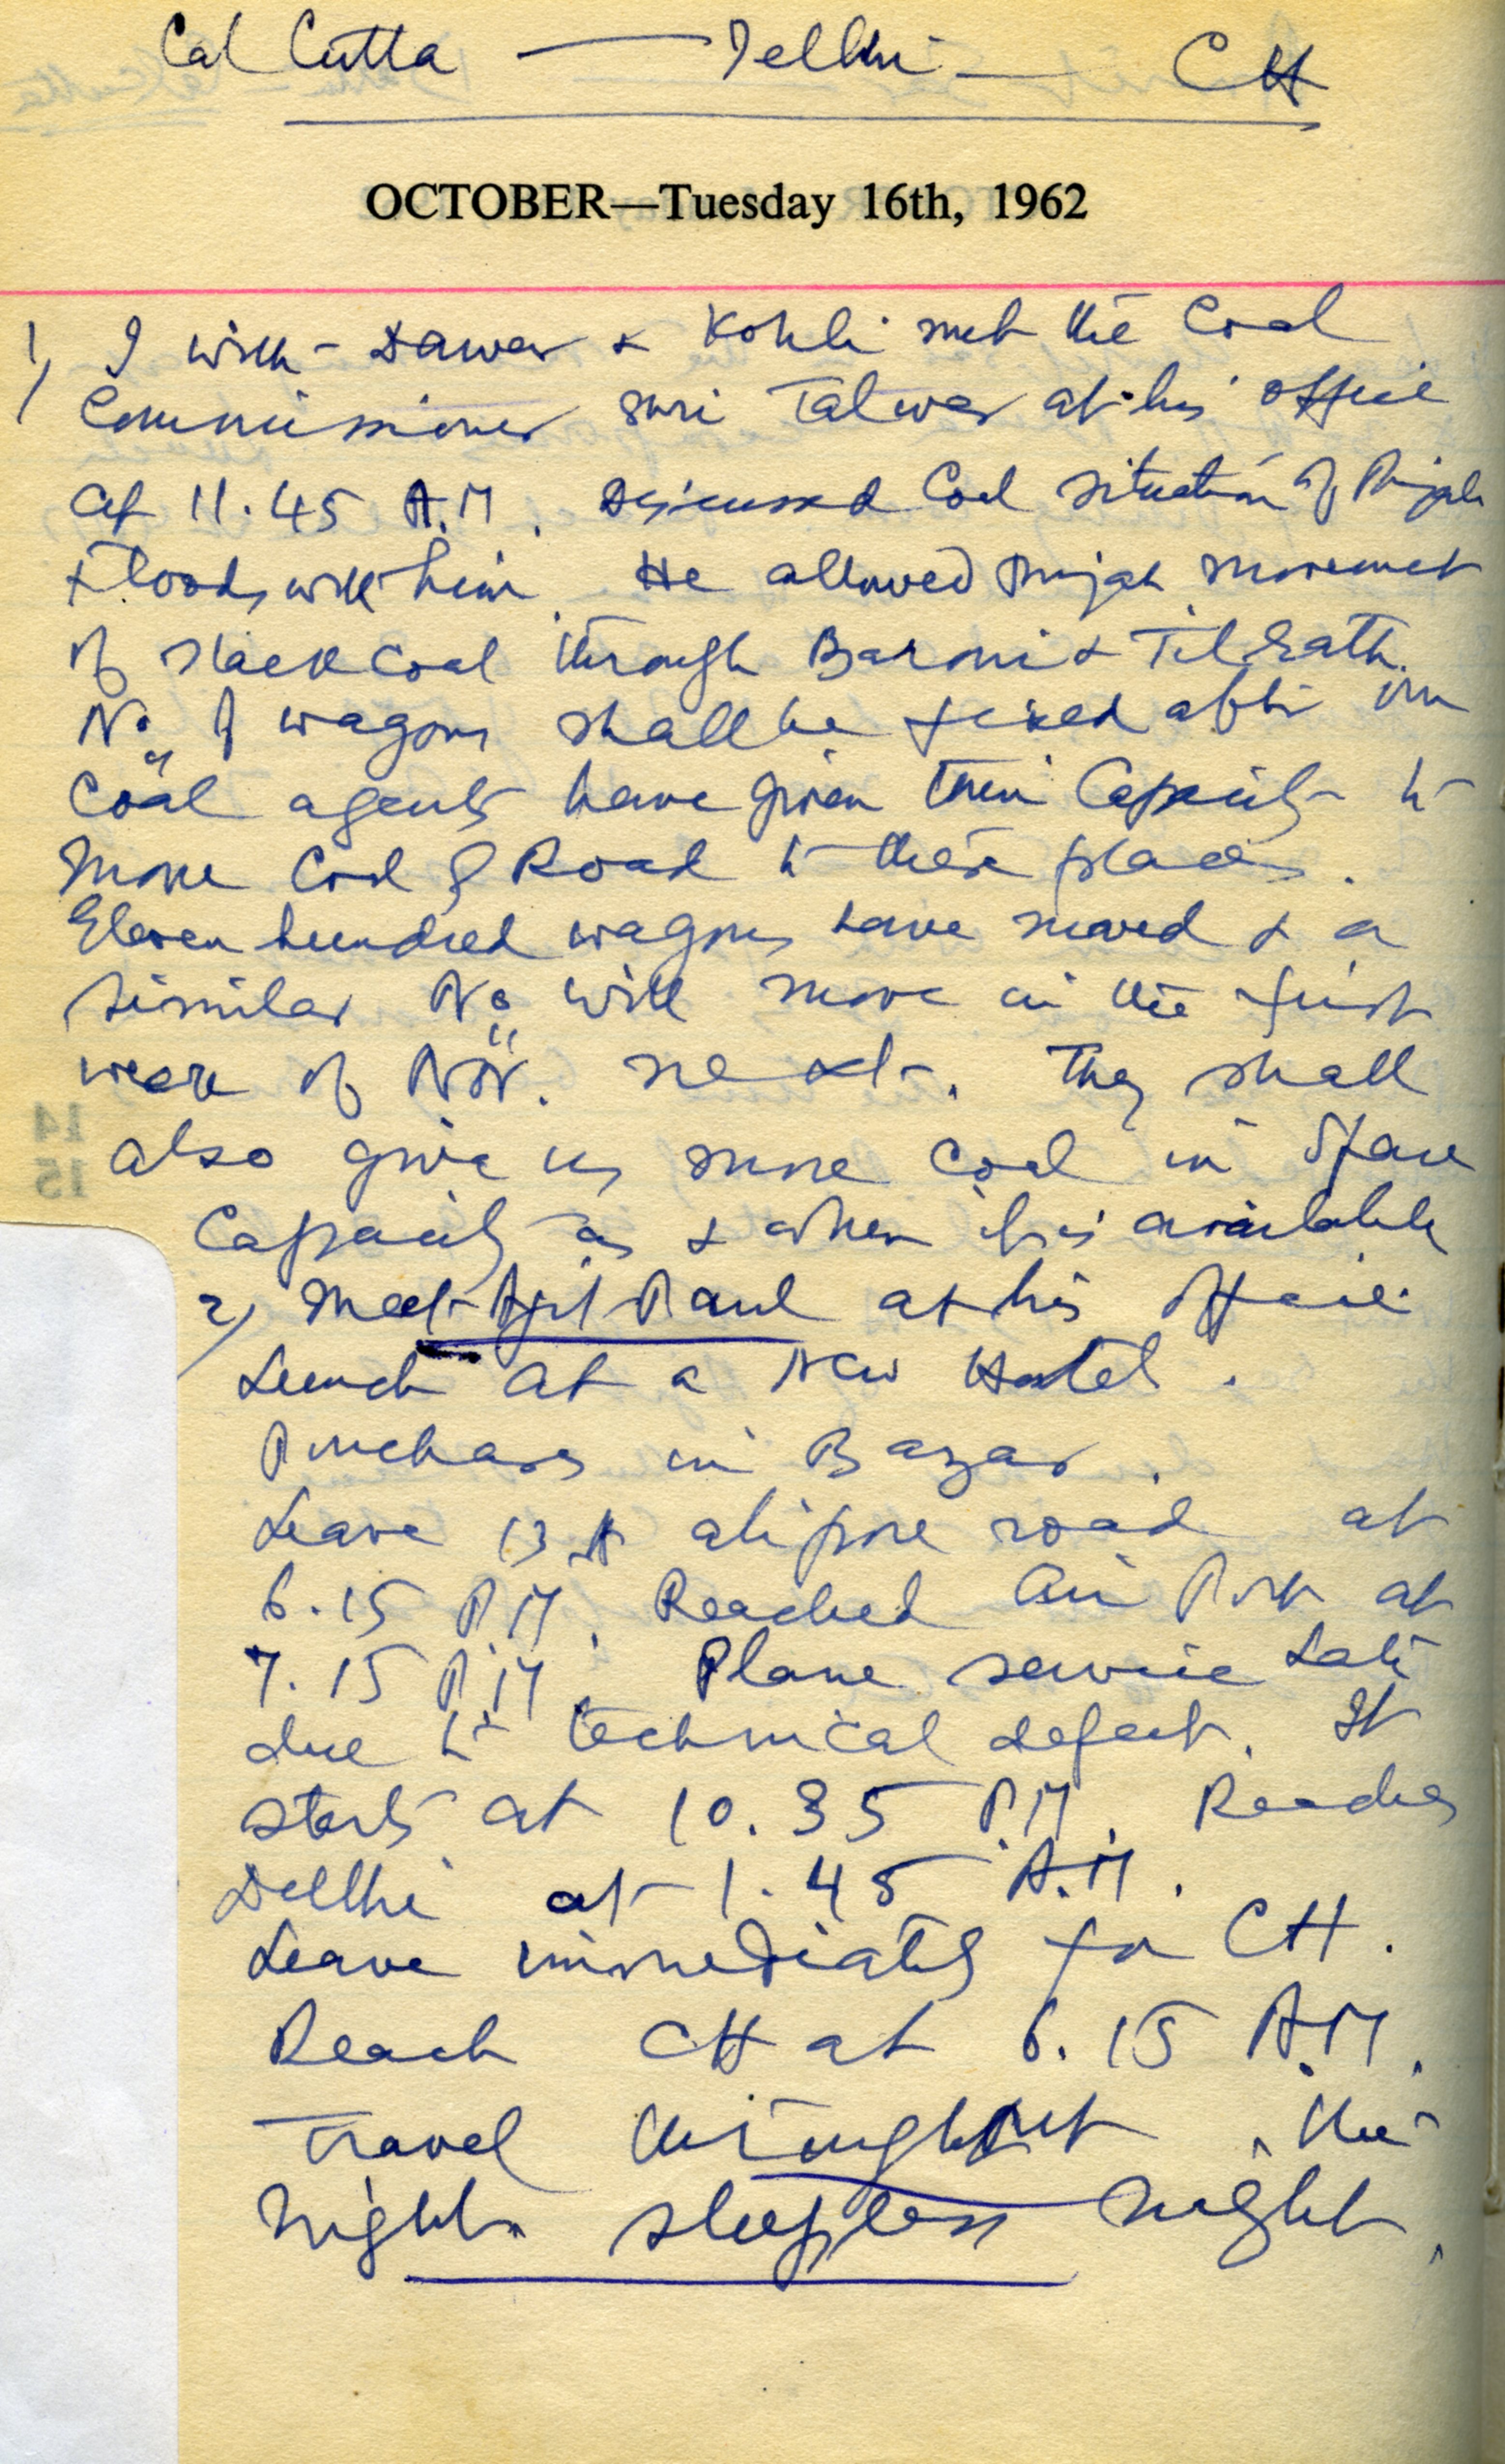 Calcutta — Delhi — CH
OCTOBER—Tuesday 16th, 1962
1) I with Dawar & Kohli met the Coal
Commissioner Shri Talwar at his office
at 11.45 A.M. Discussed Coal situation of Punjab
Floods with him. He allowed Punjab movement
of slack coal through Baroni & Tilrath.
No. of wagons shall be fixed after our
Coal agents have given their Capacity to
move Coal by Road to these places.
Eleven hundred wagons have moved & a
similar No. will move in the first
week of Nov. next. They shall
also give us more coal in spare
Capacity as & when it is available
2) Meet Ajit Paul at his office.
Lunch at a New Hotel.
Purchases in Bazar.
Leave 13 A alipore road at
6.15 P.M. Reached Air Port at
7.15 P.M. Plane service late
due to technical defect. It
starts at 10.35 P.M. Reaches
Delhi at 1.45 A.M.
Leave immediately for CH.
Reach CH at 6.15 A.M.
Travel throughout the
night. sleepless night.
14
15